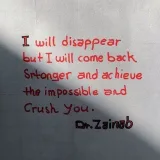 I will disappear
but I will come back
Srtonger and achieve
the impossible and
Crush you.
Dr. Zainab